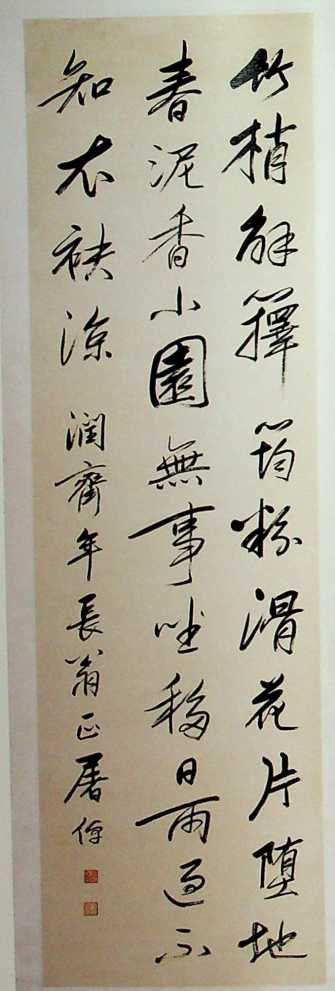 竹梢解籜筠粉滑花片墮地
春泥香小園無事坐移日雨過不
知衣袂涼
潤齋年長翁正屠倬